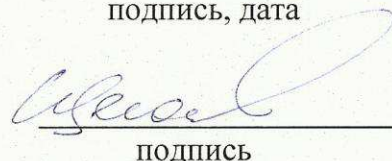 подпись, дата
подпись